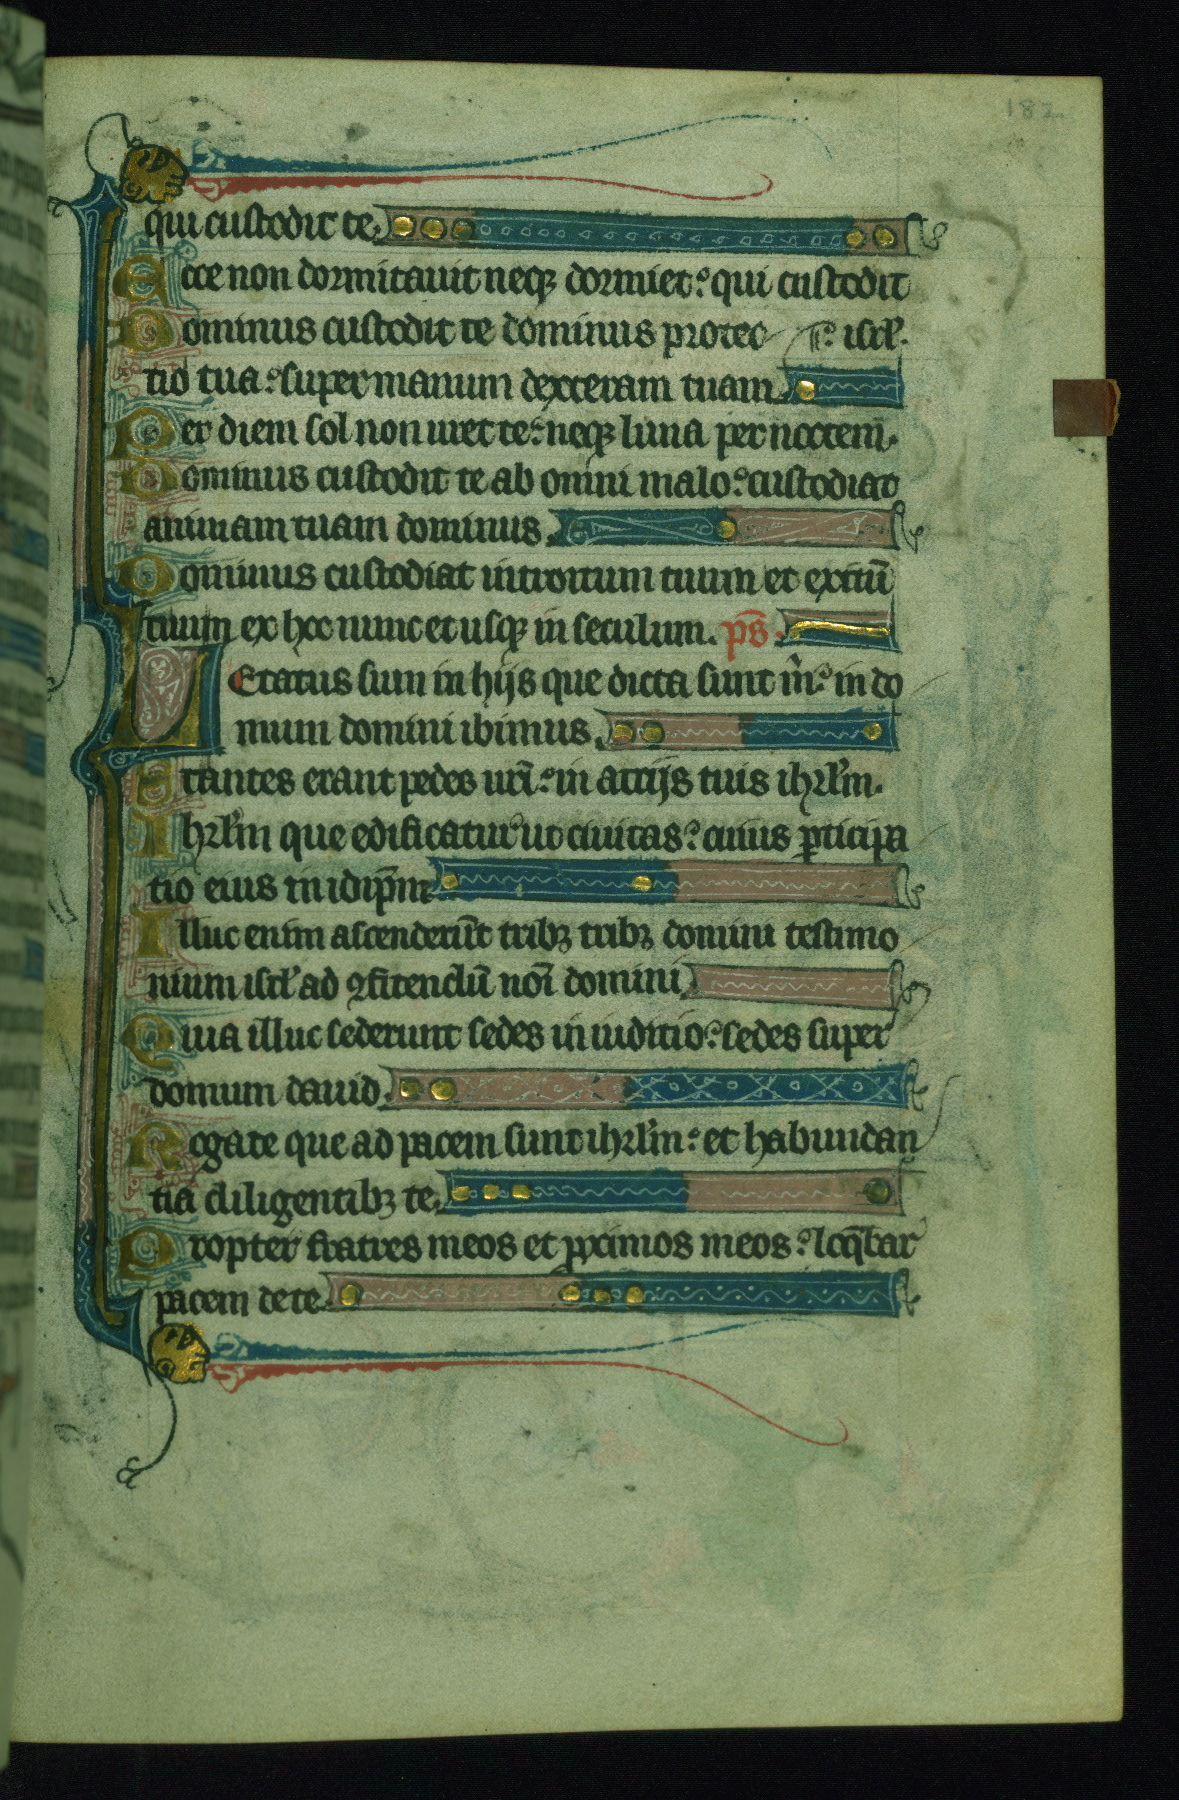 182
qui custodit te.
Ecce non dormitauit neqꝫ dormiet: qui custodit
Dominus custodit te dominus protec isrl̕.
tio tua: super manum dexteram tuam.
Per diem sol non uret te: neqꝫ luna per noctem.
Dominus custodit te ab omni malo: custodiat
animam tuam dominus.
Dominus custodiat introitum tuum et exitū
tuum ex hoc nunc et usqꝫ in seculum. ps̄.
Letatus sum in hijs que dicta sunt m̄: in do
mum domini ibimus.
Stantes erant pedes nr̄i: in atrijs tuis ihrl̄m.
Ihrl̄m que edificatur ut ciuitas: cuius ꝑticipa
tio eius in idip̄m
Illuc enim ascenderūt tribꝫ tribꝫ domini testimo
nium isrl̕ ad ꝯfitendū noī domini
Quia illuc sederunt sedes in iuditio: sedes super
domum dauid.
Rogate que ad pacem sunt ihrl̄m: et habundan
tia diligentibꝫ te.
Propter fratres meos et ꝓximos meos: loq̄bar
pacem de te.